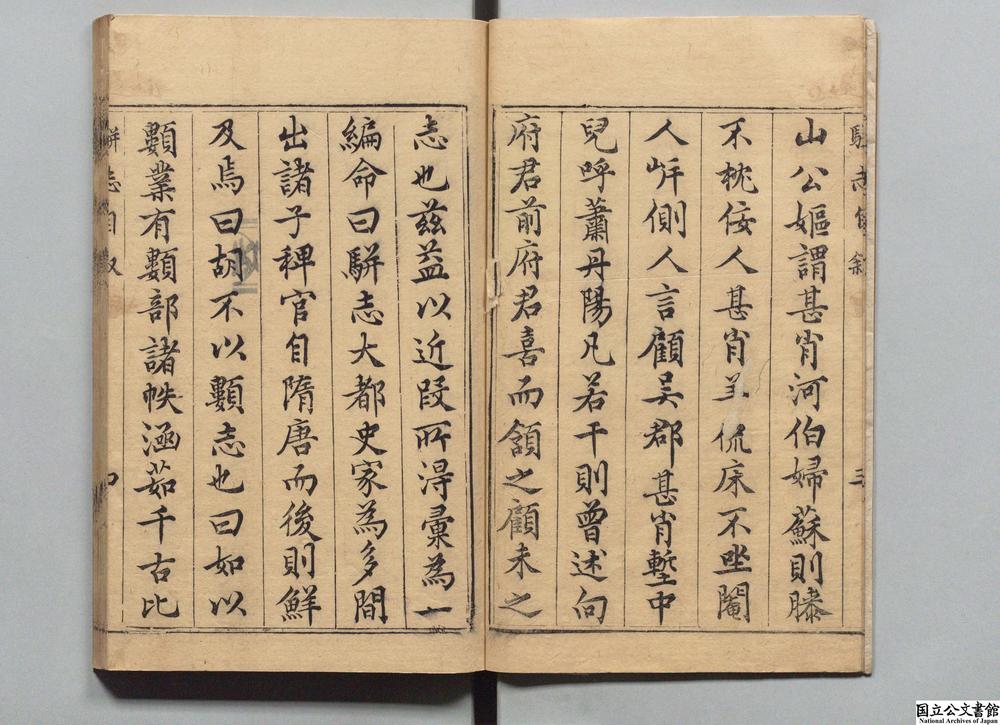 山公嫗謂甚肖河伯婦蘇則膝
不枕佞人甚肖羊侃床不坐閹
人㟁側人言顧吳郡甚肖塹中
兒呼蕭丹陽凡若干則曾述向
府君前府君喜而頷之顧未之
志也茲益以近段所得彙為一
編命曰駢志大都史家為多間
出諸子稗官自隋唐而後則鮮
及焉曰胡不以類志也曰如以
類業有類部諸帙涵茹千古比
駢志自叙
国立公文書館
National Archives of Japan